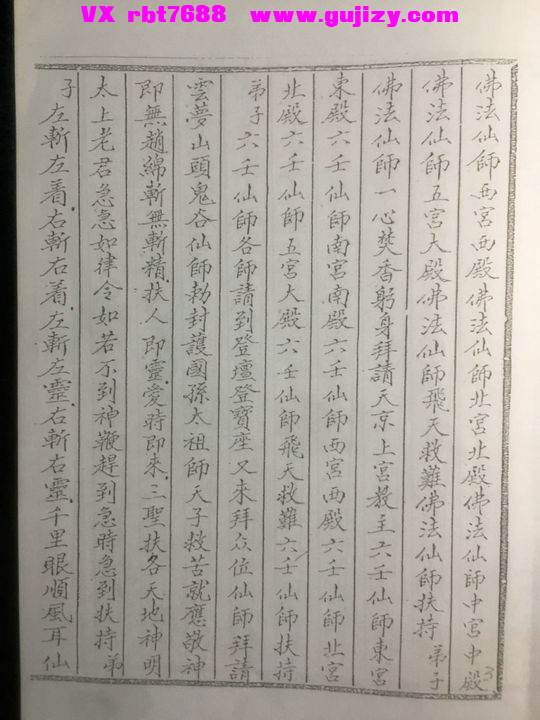 VX rbt7688 www.gujizy.com
佛法仙師西宮西殿佛法仙師北宮北殿佛法仙師中宮中殿
佛法仙師五宮大殿佛法仙師飛天救難佛法仙師扶持 弟子
佛法仙師一心焚香躬身拜請天京上宮教主六壬仙師東宮
東殿六壬仙師南宮南殿六壬仙師西宮西殿六壬仙師北宮
北殿六壬仙師五宮大殿六壬仙師飛天救難六壬仙師扶持
弟子六壬仙師各師請到登壇登寶座又来拜众位仙師拜請
雲夢山頭鬼谷仙師勅封護國孫太祖師天子救苦就應敬神
即無趙綿斬無斬精扶人即靈愛時即来三聖扶各天地神明
太上老君急急如律令如若不到神鞭趕到急時急到扶持 弟
子左斬左着右斬右着左斬左靈右斬右靈千里眼順風耳仙
3